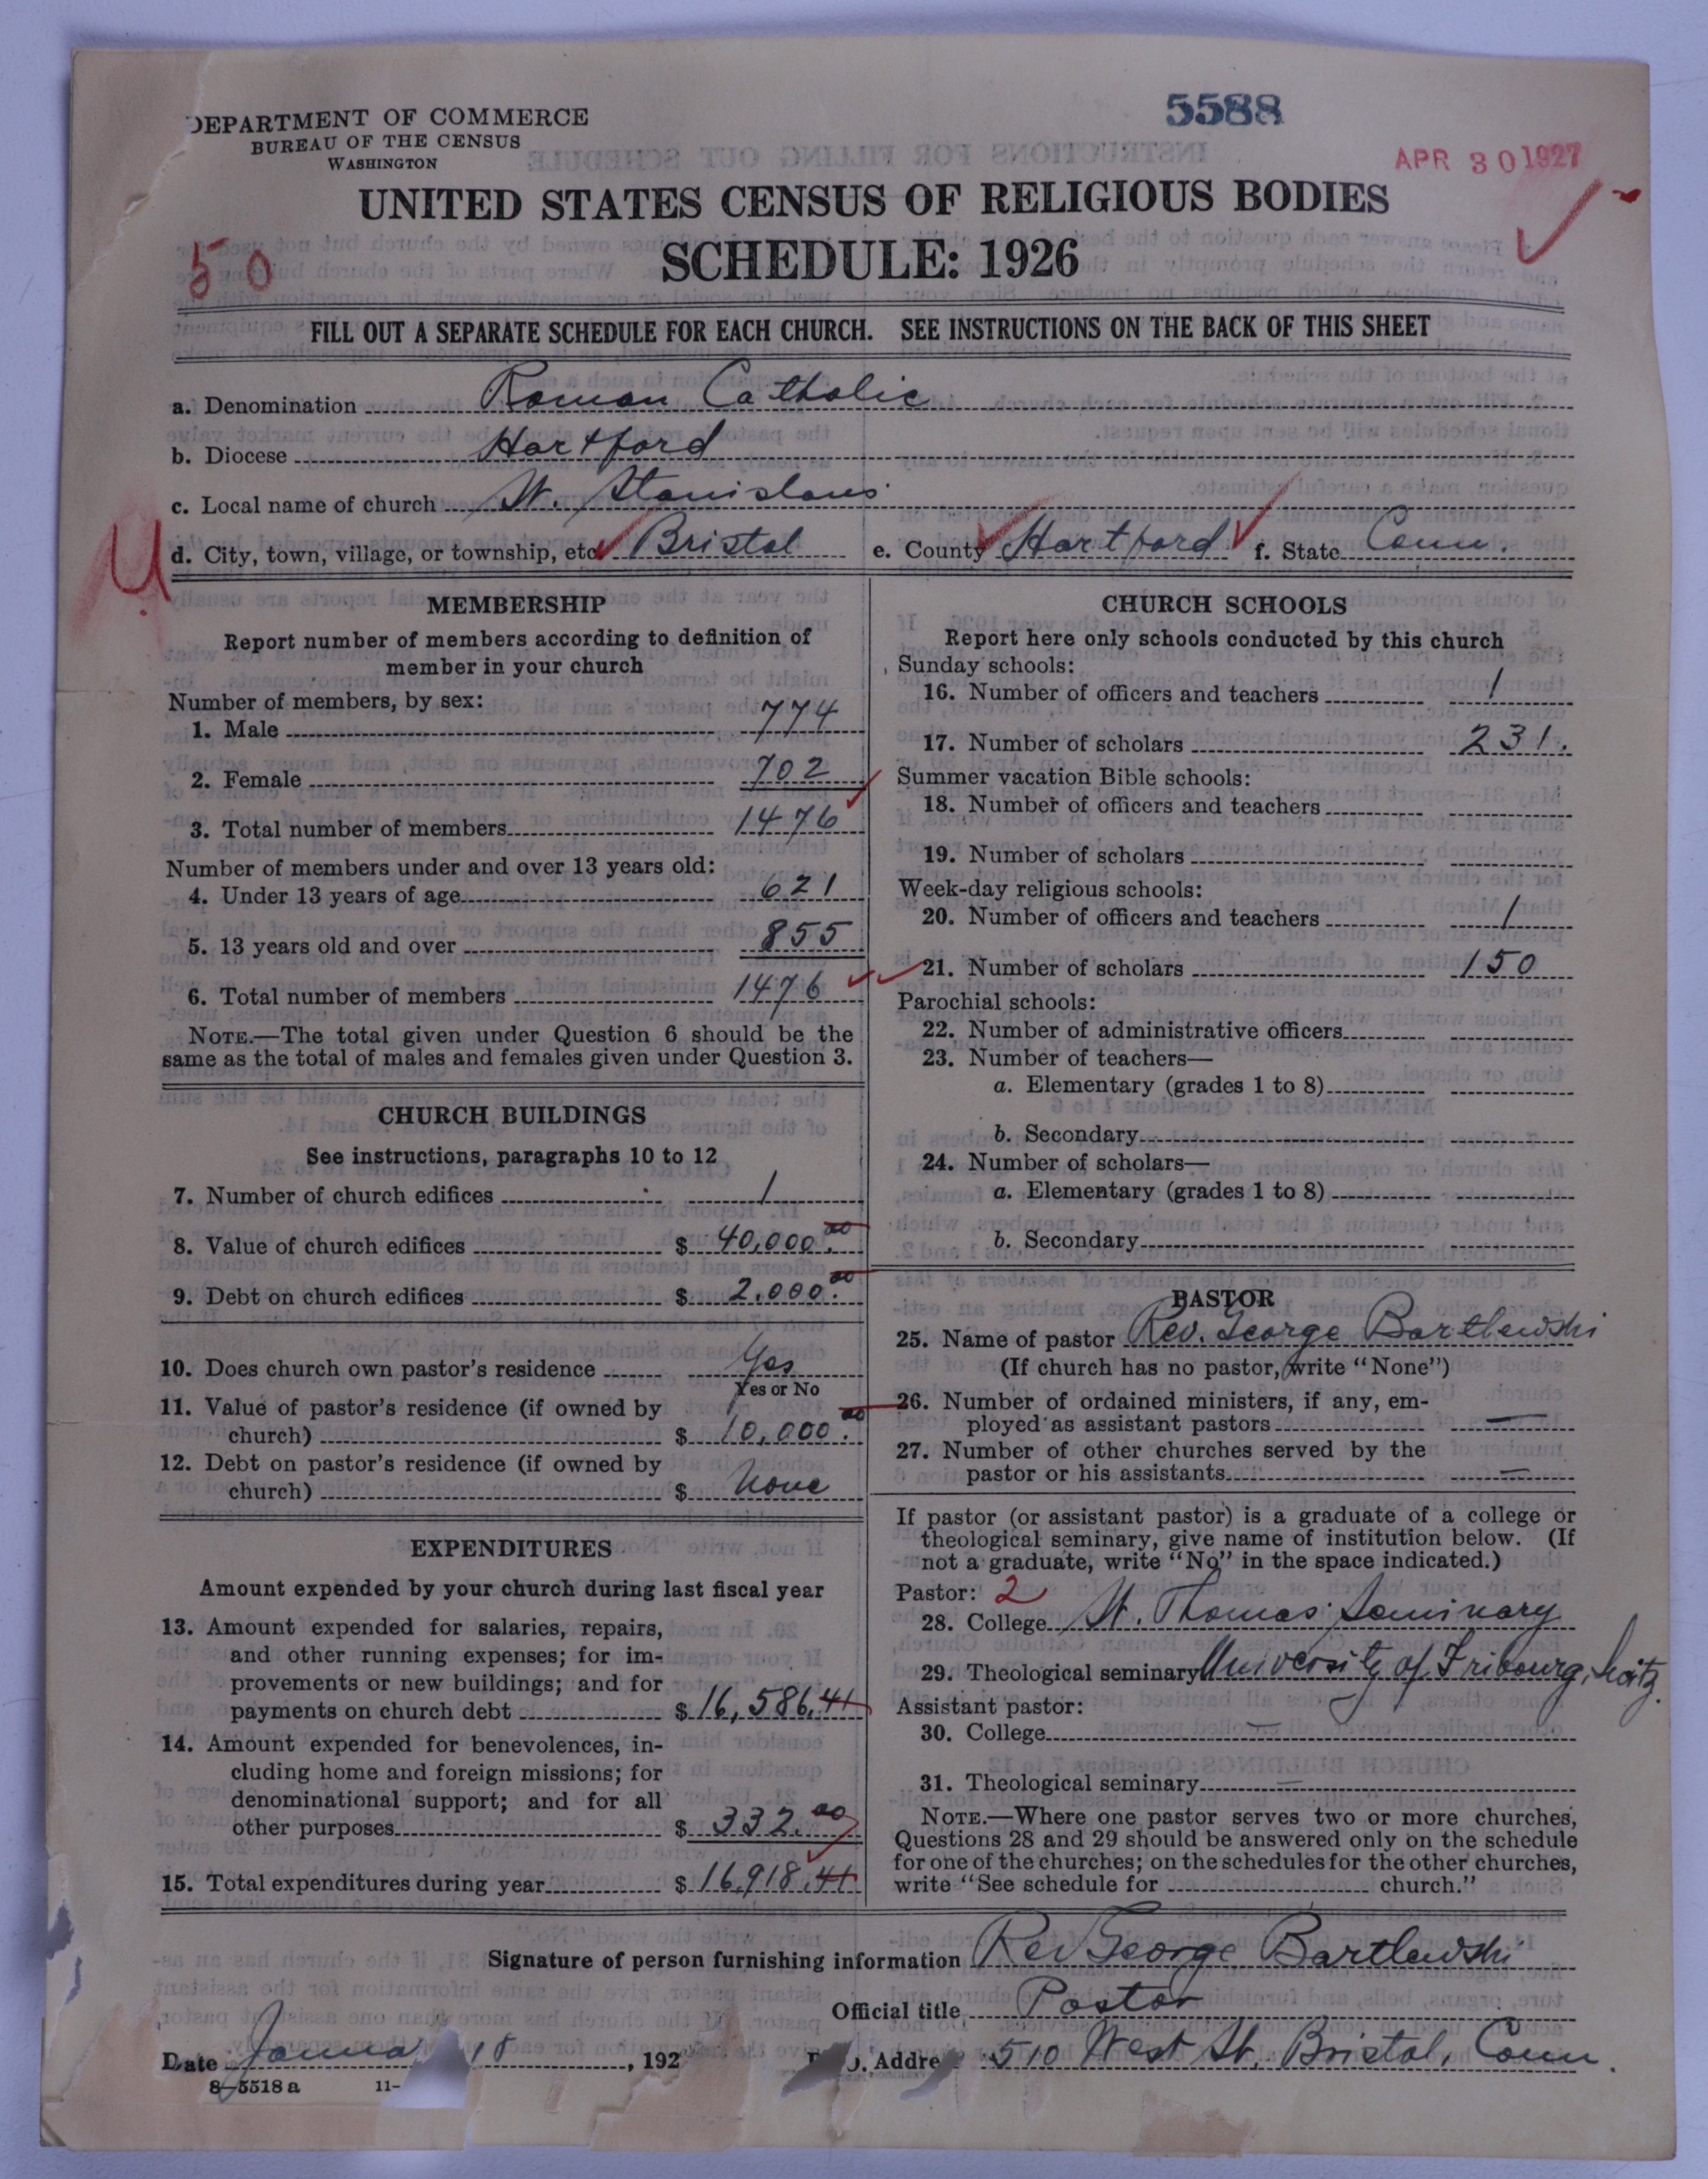 5588
DEPARTMENT OF COMMERCE
BUREAU OF THE CENSUS
WASHINGTON
APR 30 1927
UNITED STATES CENSUS OF RELIGIOUS BODIES
SCHEDULE: 1926
50
FILL OUT A SEPARATE SCHEDULE FOR EACH CHURCH. SEE INSTRUCTIONS ON THE BACK OF THIS SHEET
a. Denomination Roman Catholic
b. Diocese Hartford
c. Local name of church St. Stanislaus
d. City, town, village, or township, etc. Bristol e. County Hartford f. State Conn.
MEMBERSHIP
Report number of members according to definition of
member in your church
Number of members, by sex:
1. Male 774
2. Female 702
3. Total number of members 1476
Number of members under and over 13 years old:
4. Under 13 years of age 621
5. 13 years old and over 855
6. Total number of members 1476
NOTE.—The total given under Question 6 should be the
same as the total of males and females given under Question 3.
CHURCH BUILDINGS
See instructions, paragraphs 10 to 12
7. Number of church edifices 1
8. Value of church edifices $ 40,000.00
9. Debt on church edifices $ 2,000.00
10. Does church own pastor's residence Yes
Yes or No
11. Value of pastor's residence (if owned by
church) $ 10,000.00
12. Debt on pastor's residence (if owned by
church) $ None
EXPENDITURES
Amount expended by your church during last fiscal year
13. Amount expended for salaries, repairs,
and other running expenses; for im-
provements or new buildings; and for
payments on church debt $ 16,586.41
14. Amount expended for benevolences, in-
cluding home and foreign missions; for
denominational support; and for all
other purposes $ 332.00
15. Total expenditures during year $ 16,918.41
CHURCH SCHOOLS
Report here only schools conducted by this church
Sunday schools:
16. Number of officers and teachers 1
17. Number of scholars 231.
Summer vacation Bible schools:
18. Number of officers and teachers
19. Number of scholars
Week-day religious schools:
20. Number of officers and teachers 1
21. Number of scholars 150
Parochial schools:
22. Number of administrative officers
23. Number of teachers—
a. Elementary (grades 1 to 8)
b. Secondary
24. Number of scholars—
a. Elementary (grades 1 to 8)
b. Secondary
PASTOR
25. Name of pastor Rev. George Bartlewski
(If church has no pastor, write "None")
26. Number of ordained ministers, if any, em-
ployed as assistant pastors —
27. Number of other churches served by the
pastor or his assistants —
If pastor (or assistant pastor) is a graduate of a college or
theological seminary, give name of institution below. (If
not a graduate, write "No" in the space indicated.)
Pastor: 2
28. College St. Thomas Seminary
29. Theological seminary University of Fribourg, Switz.
Assistant pastor:
30. College —
31. Theological seminary —
NOTE.—Where one pastor serves two or more churches,
Questions 28 and 29 should be answered only on the schedule
for one of the churches; on the schedules for the other churches,
write "See schedule for church."
Signature of person furnishing information Rev George Bartlewski
Official title Pastor
Date Januar 18, 192
P. O. Addre 510 West St. Bristol, Conn.
8-5518 a 11-